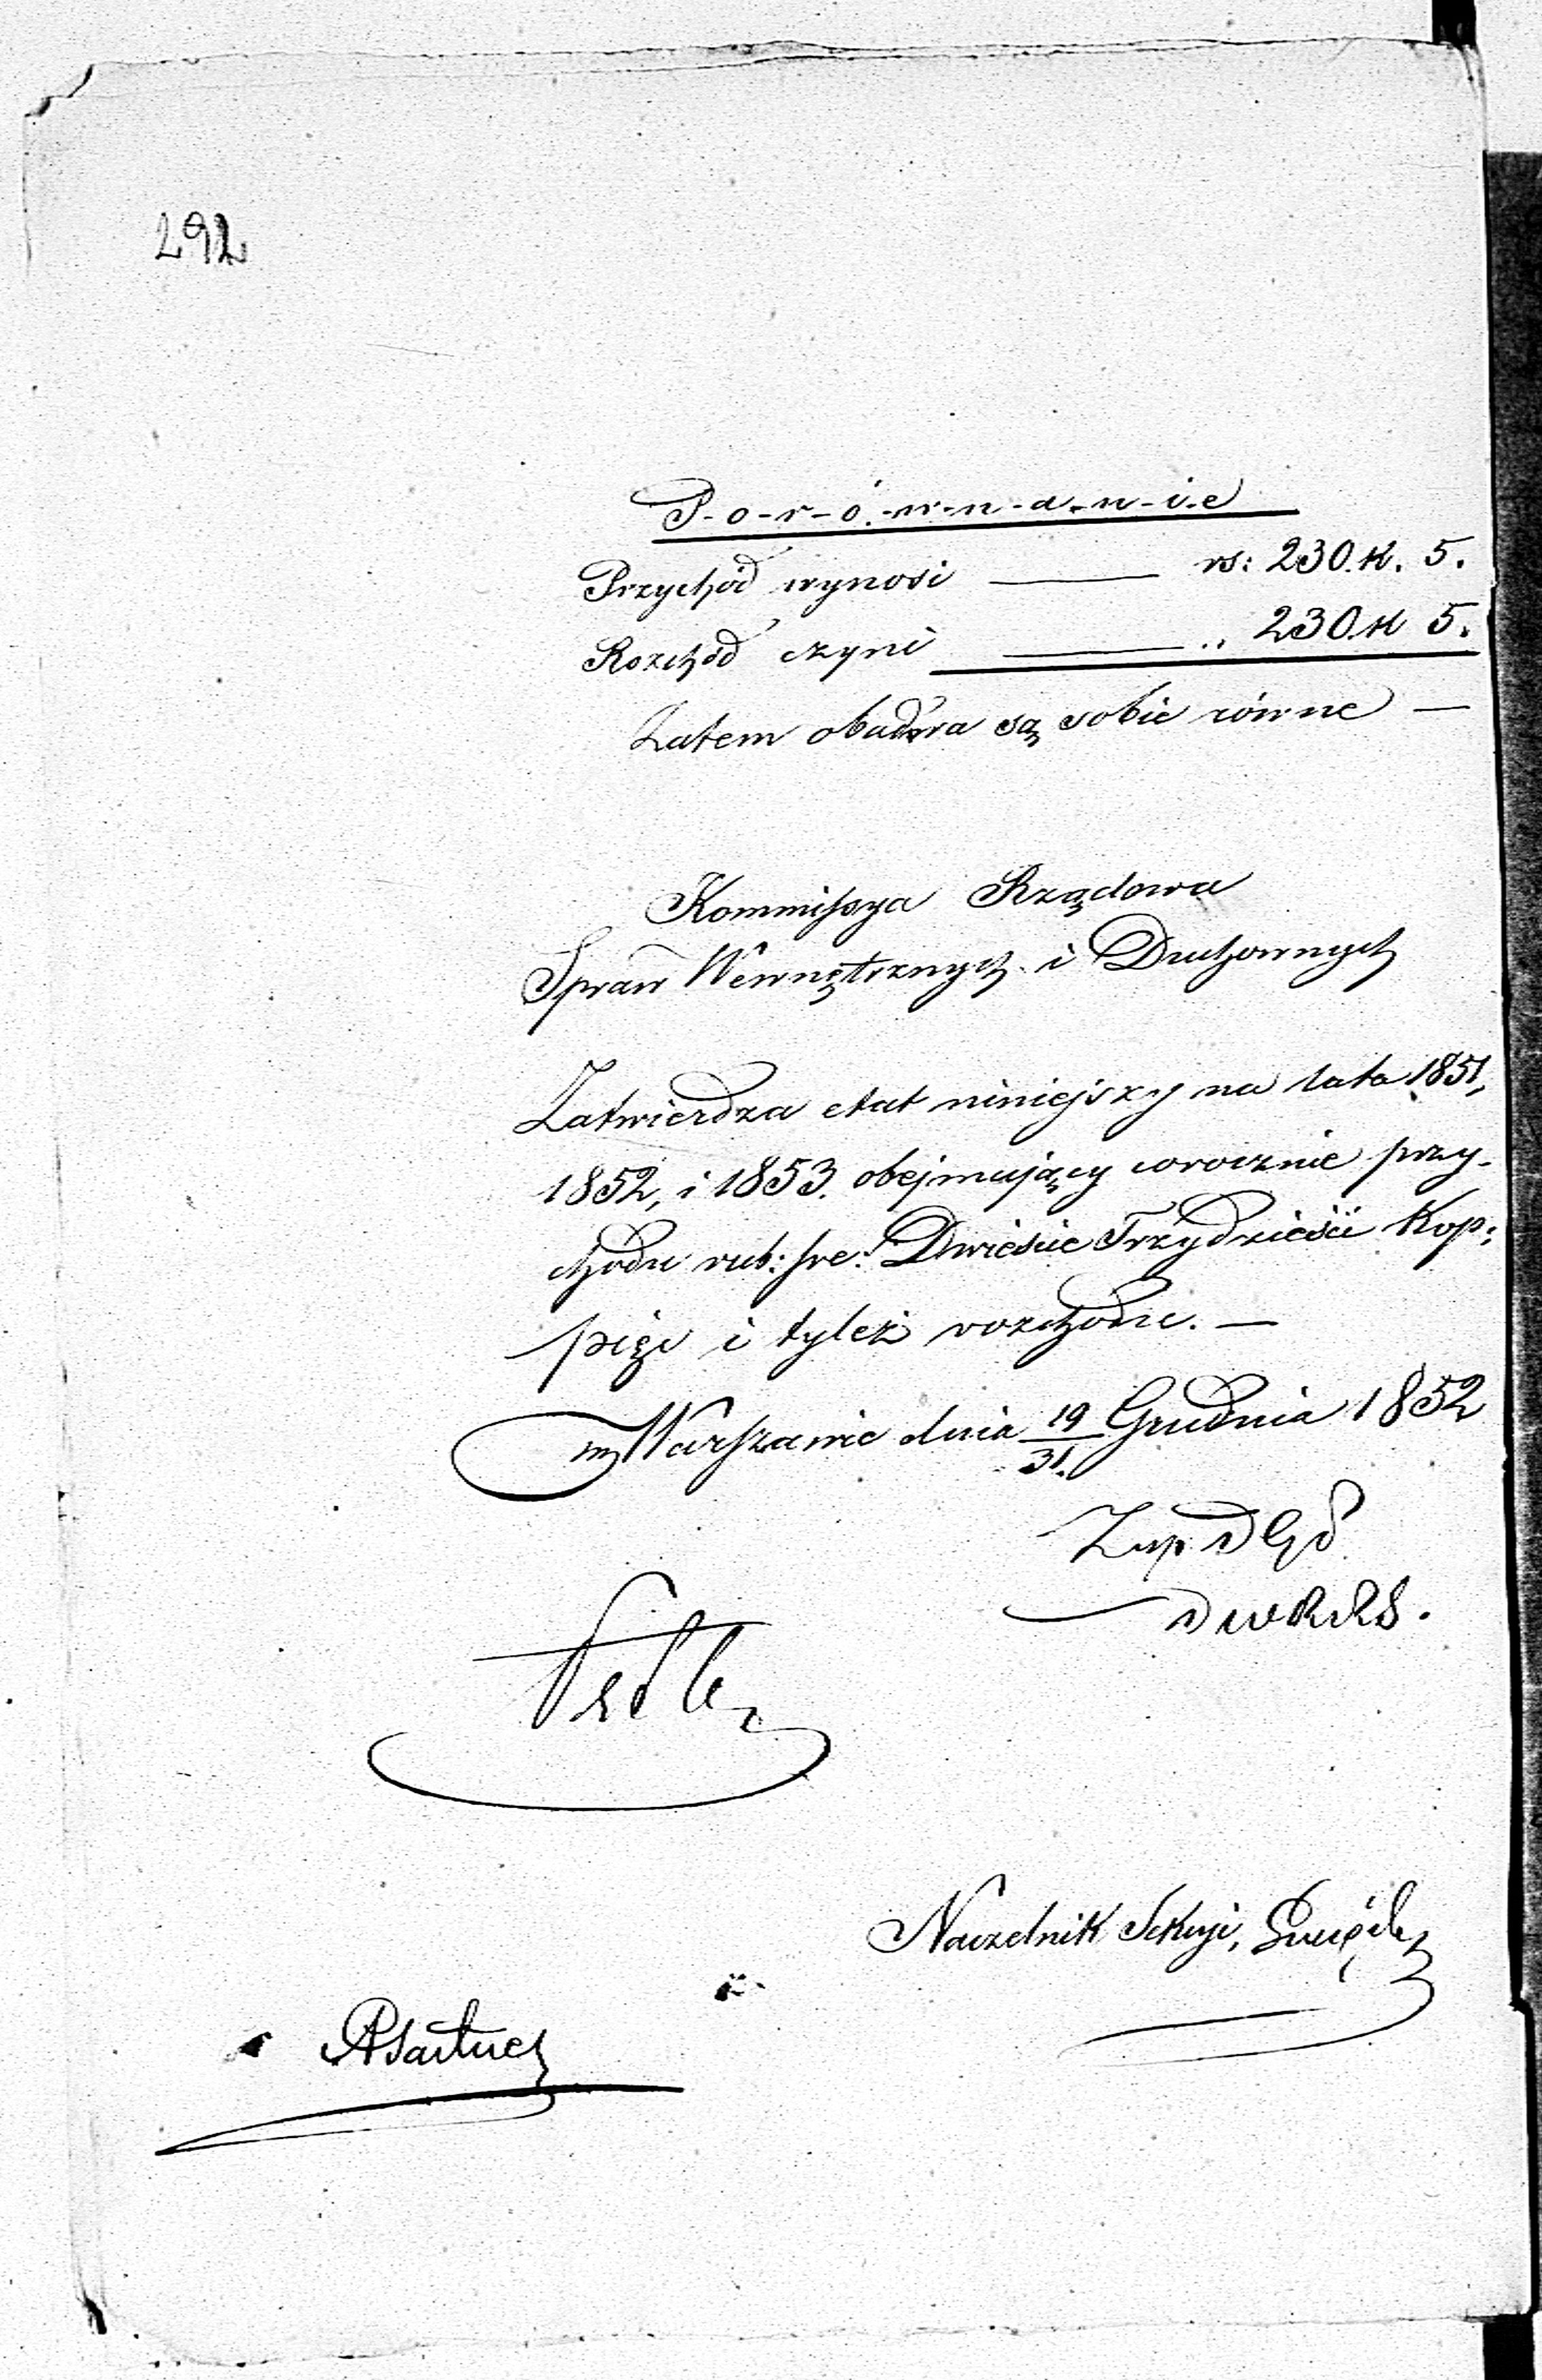 292
P-o-r-ó-w-n-a-n-i-e
Przychód wynosi — rs: 230. k. 5.
Rozchód czyni — „ 230. k 5.
Zatem obadwa są sobie równe —
Kommissya Rządowa
Spraw Wewnętrznych i Duchownych
Zatwierdza etat niniejszy na lata 1851,
1852, i 1853. obejmujący corocznie przy-
chodu rub: sre: Dwieście Trzydzieści Kop:
pięć i tyleż rozchodu. —
w Warszawie dnia 19/31. Grudnia 1852
Naczelnik Sekcyi,